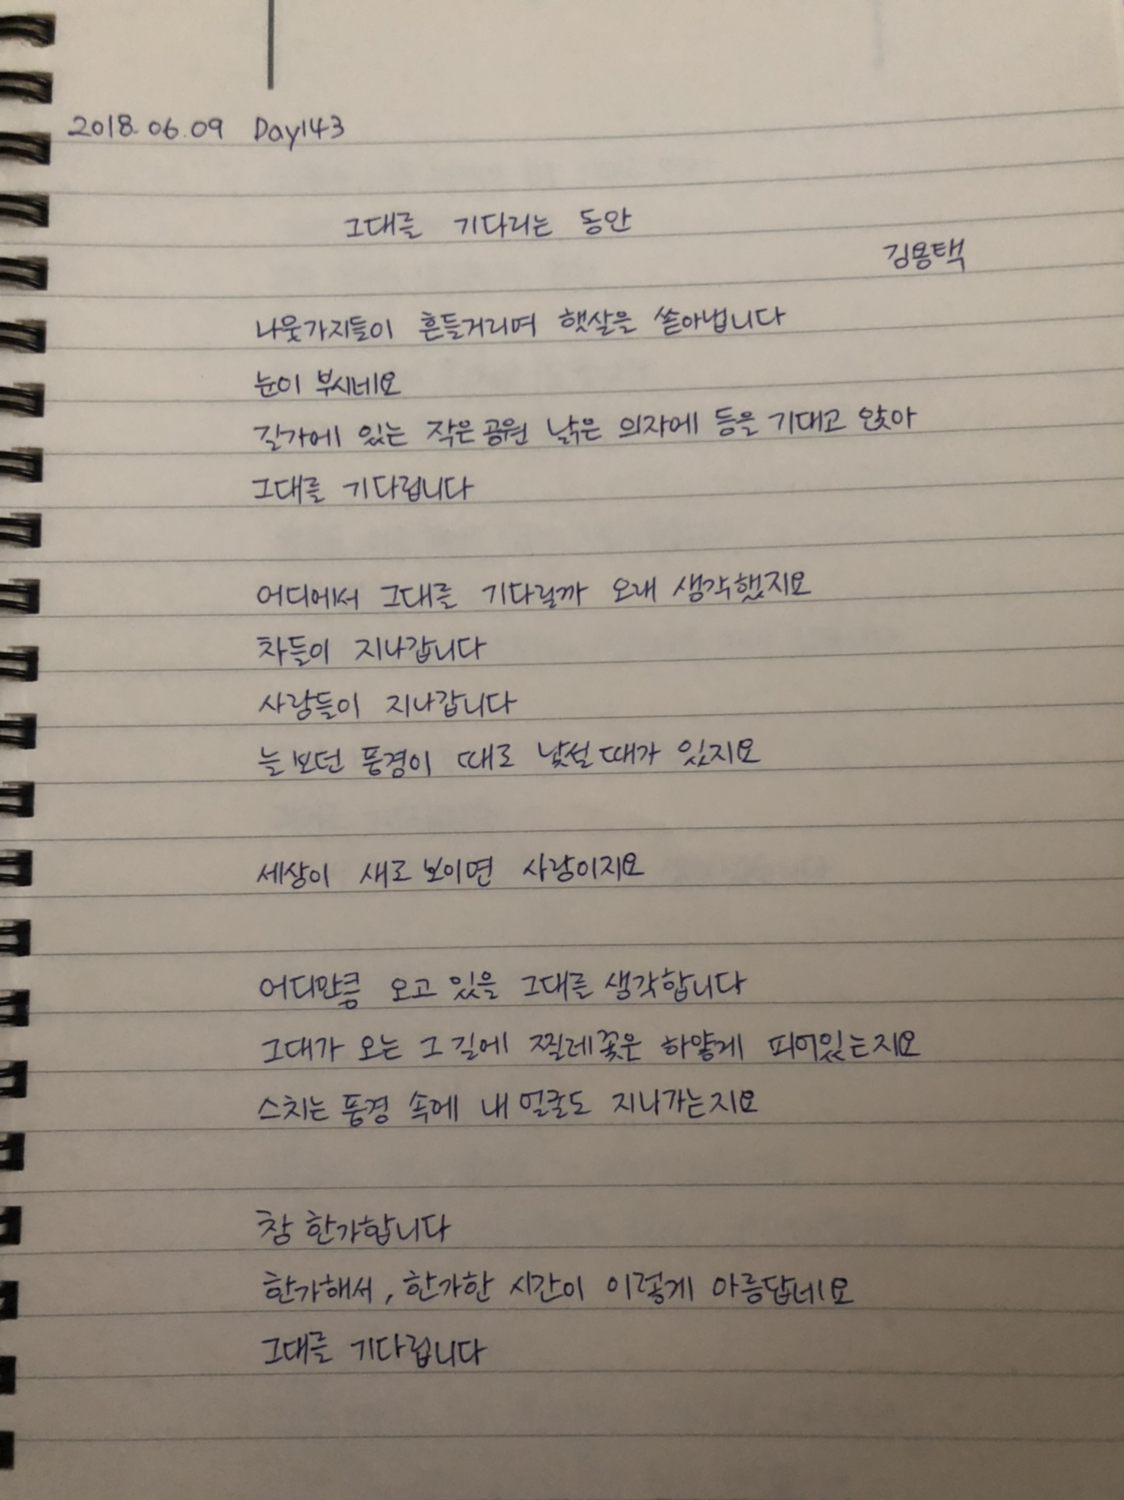 2018.06.09 Day143
그대를 기다리는 동안
김용택
나뭇가지들이 흔들거리며 햇살을 쏟아냅니다
눈이 부시네요
길가에 있는 작은 공원 낡은 의자에 등을 기대고 앉아
그대를 기다립니다
어디에서 그대를 기다릴까 오래 생각했지요
차들이 지나갑니다
사람들이 지나갑니다
늘 보던 풍경이 때로 낯설 때가 있지요
세상이 새로 보이면 사랑이지요
어디만큼 오고 있을 그대를 생각합니다
그대가 오는 그 길에 찔레꽃은 하얗게 피어있는지요
스치는 풍경 속에 내 얼굴도 지나가는지요
참 한가합니다
한가해서, 한가한 시간이 이렇게 아름답네요
그대를 기다립니다